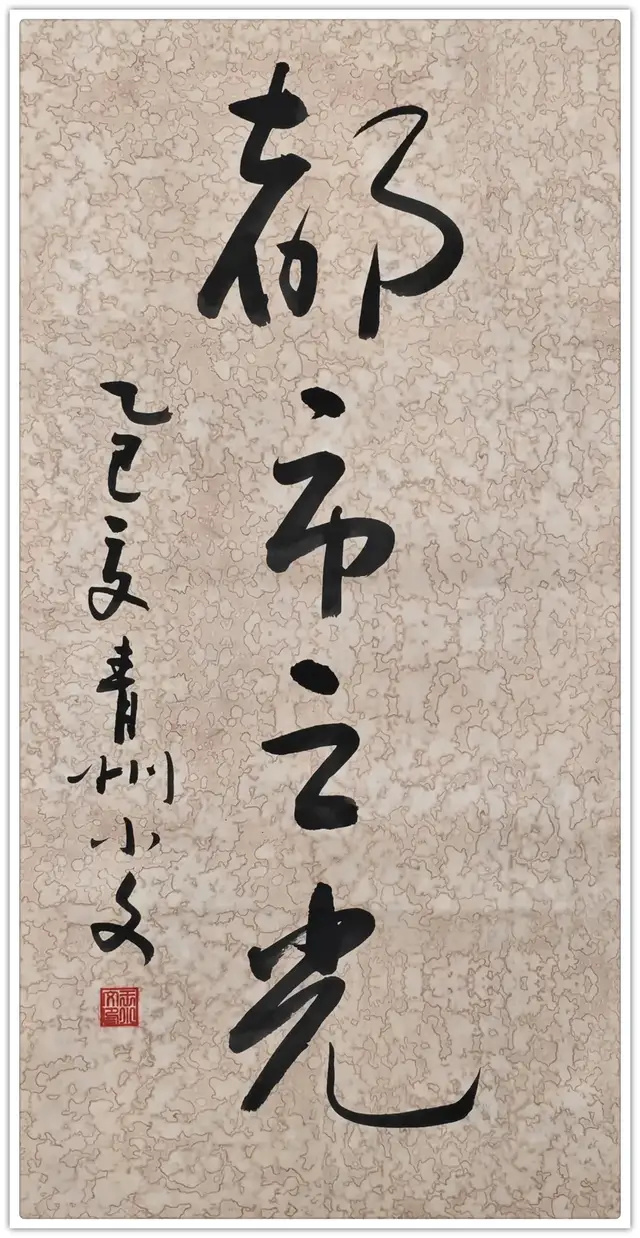 都市之光
乙巳夏青州小文